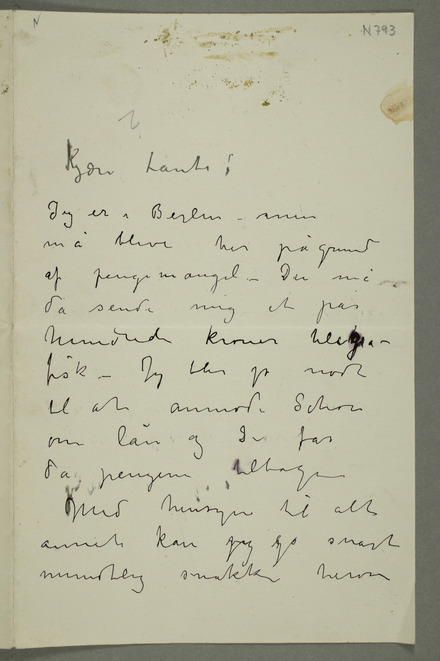 N
N793
Kjære tante!
Jeg er i Berlin – men
må blive her på grund
af pengemangel – Du må
da sende mig et par
hundrede kroner telegra-
fisk – Jeg blir jo nødt
til at anmode Schou
om lån og Du får
da pengene tilbage
Med hensyn til alt
annet kan jeg jo snart
mundtlig snakke herom